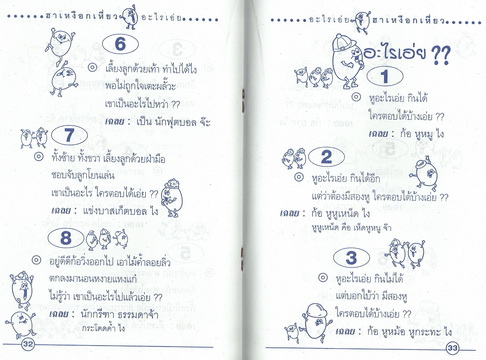 ฮาเหงือกเหี่ยว อะไรเอ่ย
6
เลี้ยงลูกด้วยเท้า ทำไปได้ไง
พอไม่ถูกใจเตะผลั๊วะ
เขาเป็นอะไรไปหว่า ??
เฉลย : เป็น นักฟุตบอล จ๊ะ
7
ทั้งซ้าย ทั้งขวา เลี้ยงลูกด้วยฝ่ามือ
ชอบจับลูกโยนเล่น
เขาเป็นอะไร ใครตอบได้เอ่ย ??
เฉลย : แข่งบาสเก็ตบอล ไง
8
อยู่ดีดีก็วิ่งออกไป เอาไม้ค้ำลอยลิ่ว
ตกลงมานอนหงายแหงแก๋
ไม่รู้ว่า เขาเป็นอะไรไปแล้วเอ่ย ??
เฉลย : นักกรีฑา ธรรมดาจ้า
กระโดดค้ำ ไง
32
อะไรเอ่ย ฮาเหงือกเหี่ยว
อะไรเอ่ย ??
1
หูอะไรเอ่ย กินได้
ใครตอบได้บ้างเอ่ย ??
เฉลย : ก้อ หูหมู ไง
2
หูอะไรเอ่ย กินได้อีก
แต่ว่าต้องมีสองหู ใครตอบได้บ้างเอ่ย ??
เฉลย : ก้อ หูหูเหนิด ไง
หูหูเหนิด คือ เห็ดหูหนู จ้า
3
หูอะไรเอ่ย กินไม่ได้
แต่บอกไปว่า มีสองหู
ใครตอบได้บ้างเอ่ย ??
เฉลย : ก้อ หูหม้อ หูกระทะ ไง
33